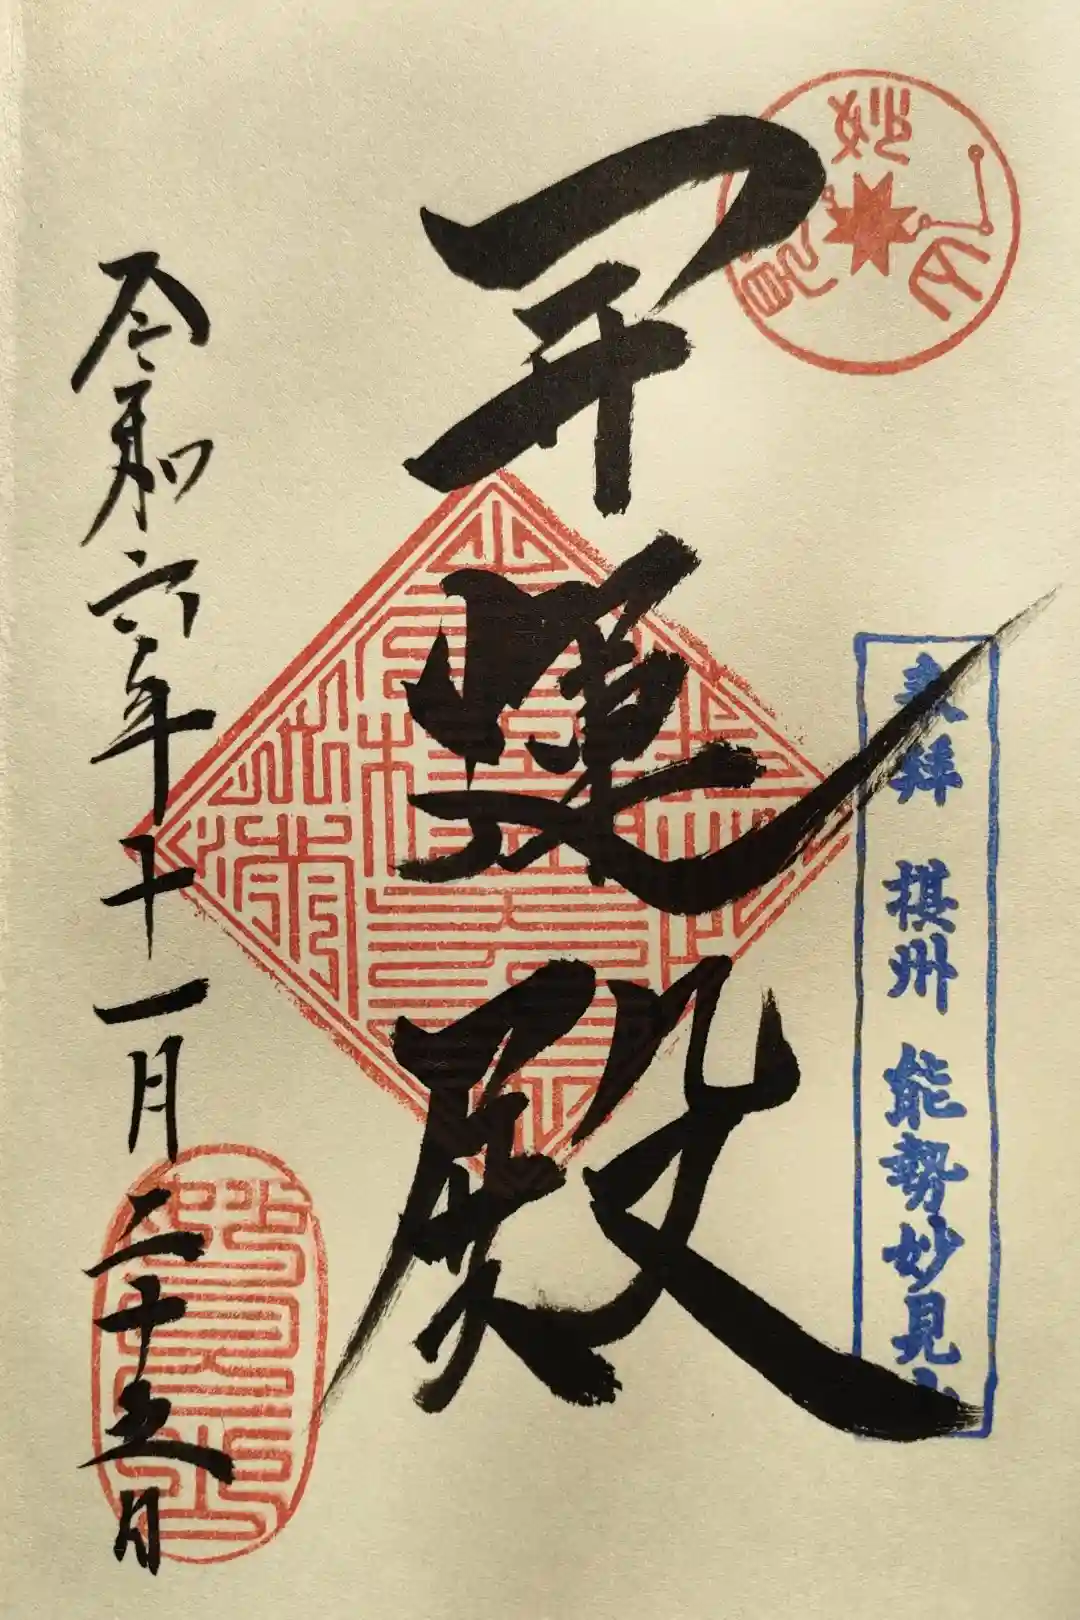 妙見山
奉拝 摂州 能勢妙見山
開運殿
令和六年十一月二十五日